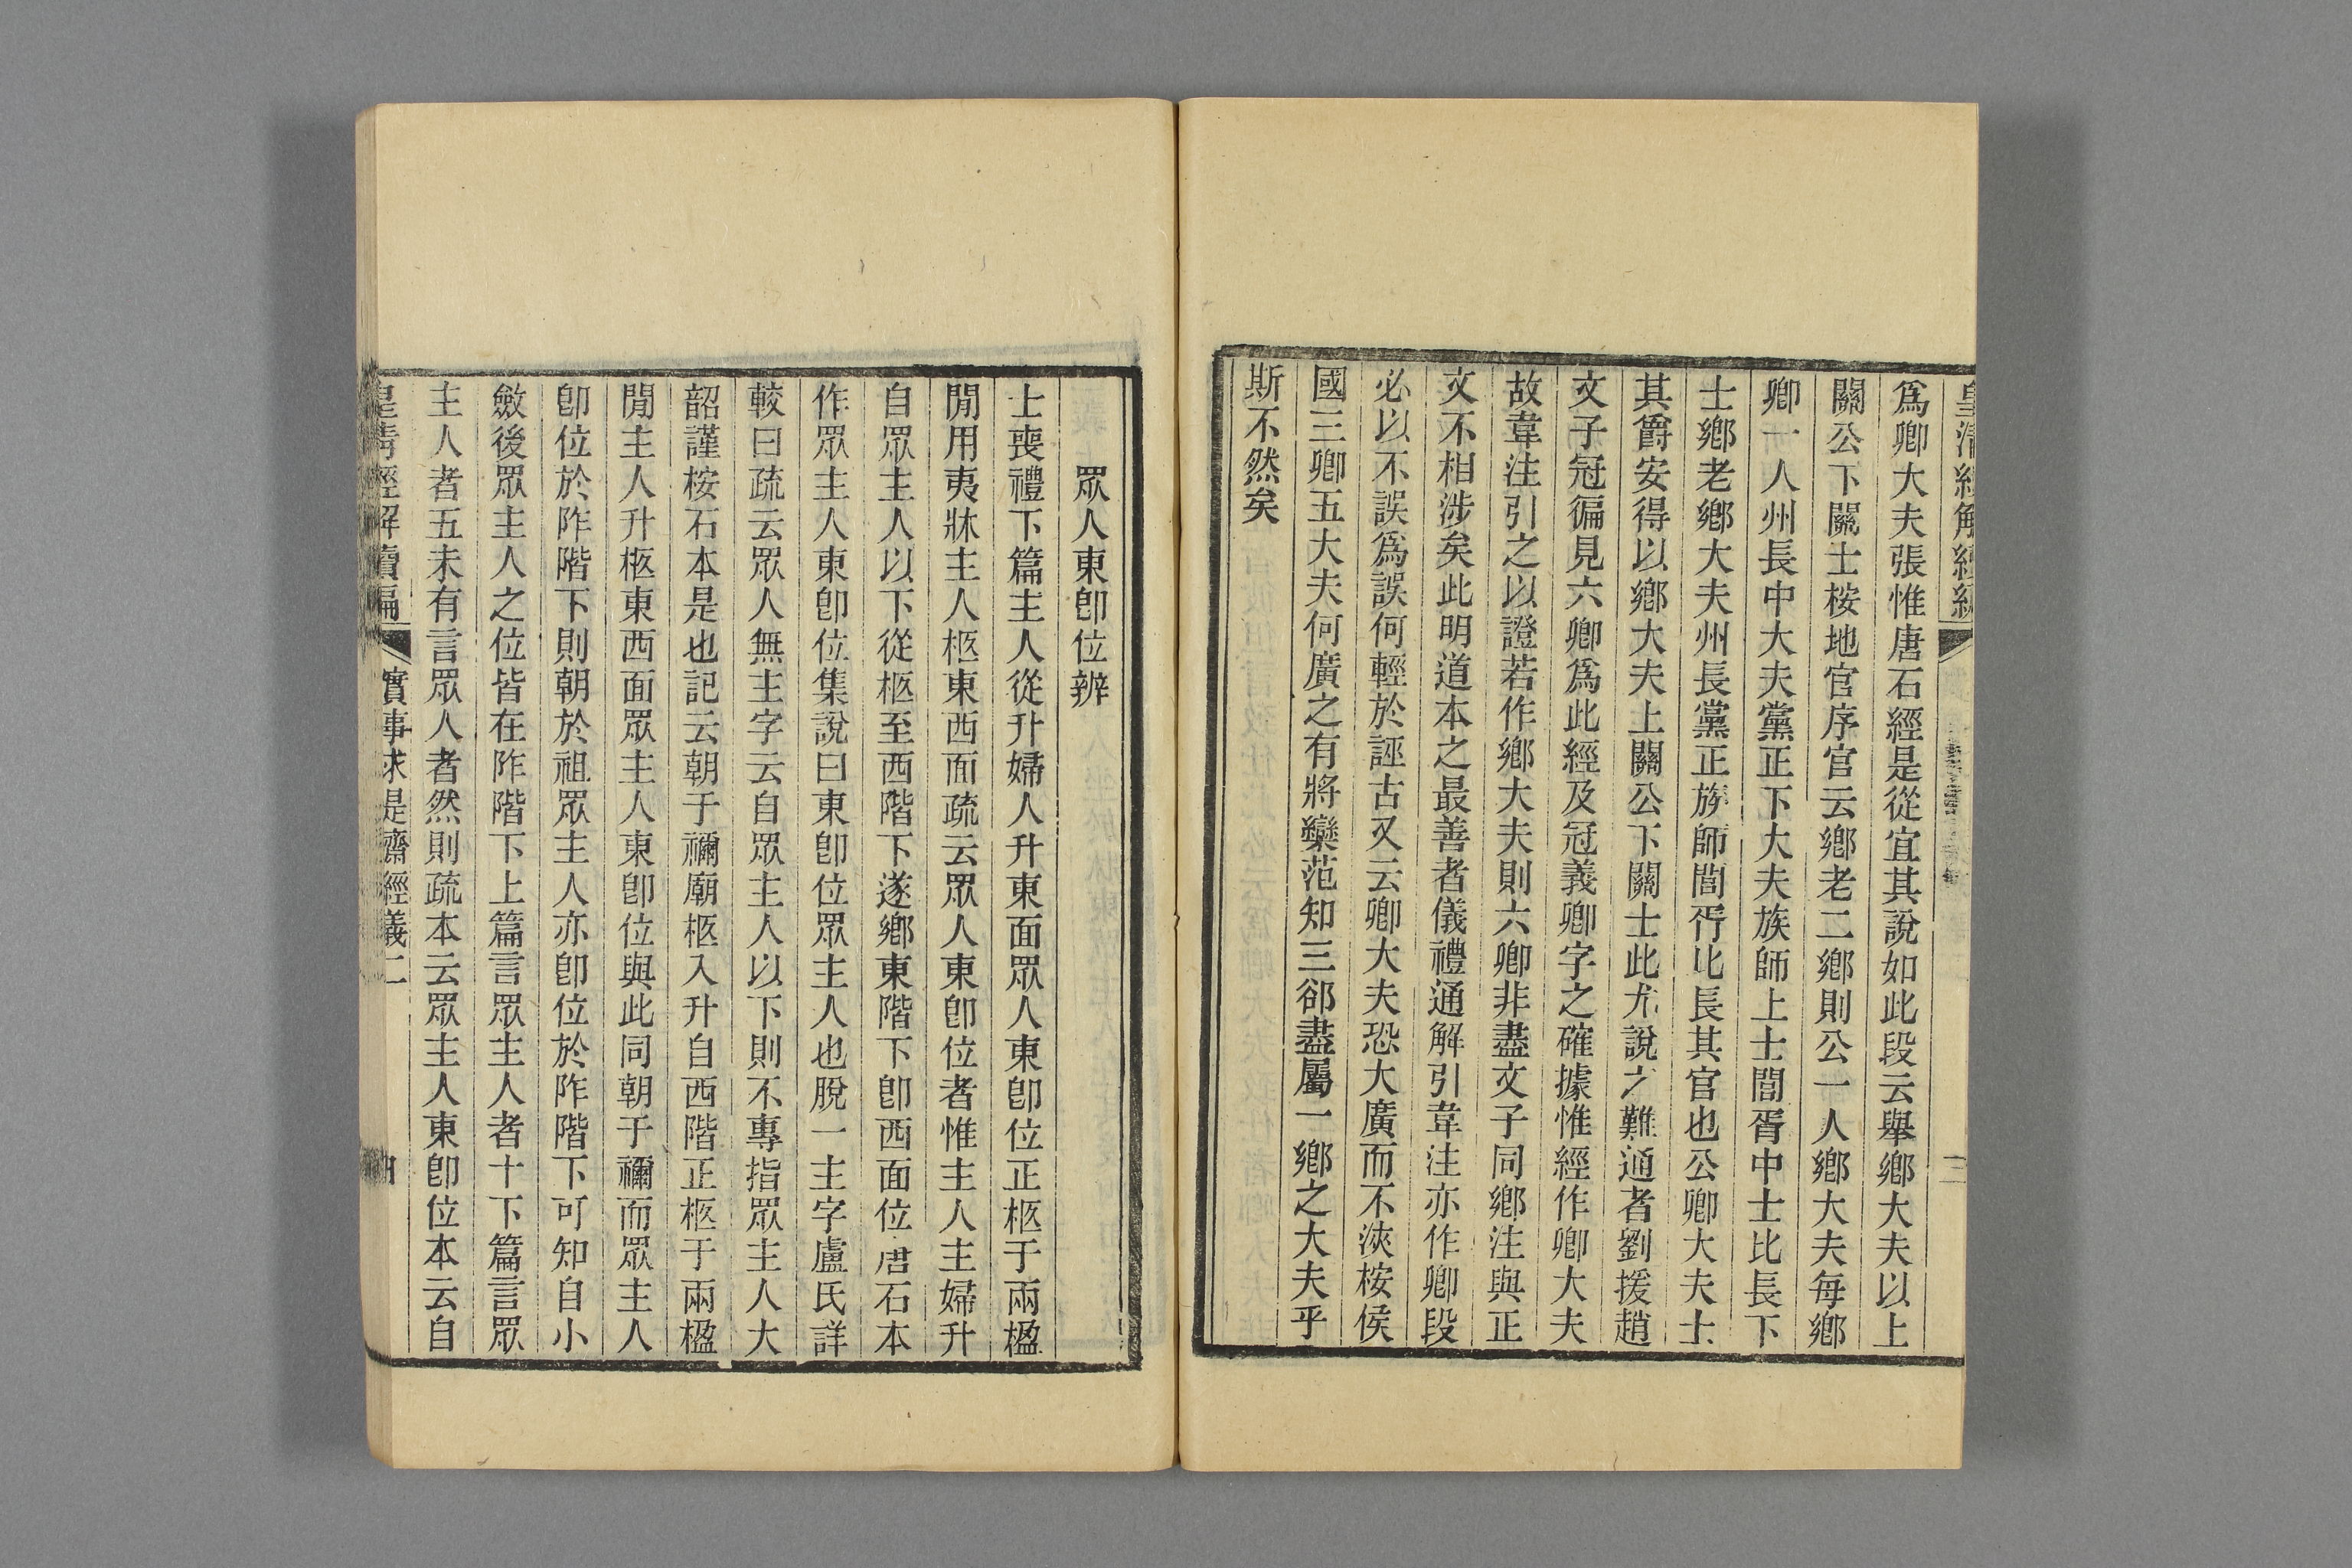 爲卿大夫張惟唐石經是從宜其說如此段云舉鄉大夫以上
關公下關士桉地官序官云鄉老二鄉則公一人鄉大夫每鄉
卿一人州長中大夫黨正下大夫族師上士閭胥中士比長下
士鄉老鄉大夫州長黨正族師閭胥比長其官也公卿大夫士
其爵安得以鄉大夫上關公下關士此尤說之難通者劉援趙
文子冠徧見六卿爲此經及冠義卿字之確據惟經作卿大夫
故韋注引之以證若作鄉大夫則六卿非盡文子同鄉注與正
文不相涉矣此明道本之最善者儀禮通解引韋注亦作卿段
必以不誤爲誤何輕於誣古又云卿大夫恐大廣而不浹桉侯
國三卿五大夫何廣之有將欒范知三郤盡屬一鄉之大夫乎
斯不然矣
眾人東卽位辨
士喪禮下篇主人從升婦人升東面眾人東卽位正柩于兩楹
閒用夷牀主人柩東西面疏云眾人東卽位者惟主人主婦升
自眾主人以下從柩至西階下遂鄉東階下卽西面位唐石本
作眾主人東卽位集說曰東卽位眾主人也脫一主字盧氏詳
較曰疏云眾人無主字云自眾主人以下則不專指眾主人大
韶謹桉石本是也記云朝于禰廟柩入升自西階正柩于兩楹
閒主人升柩東西面眾主人東卽位與此同朝于禰而眾主人
卽位於阼階下則朝於祖眾主人亦卽位於阼階下可知自小
斂後眾主人之位皆在阼階下上篇言眾主人者十下篇言眾
主人者五未有言眾人者然則疏本云眾主人東卽位本云自
皇清經解續編
實事求是齋經義二